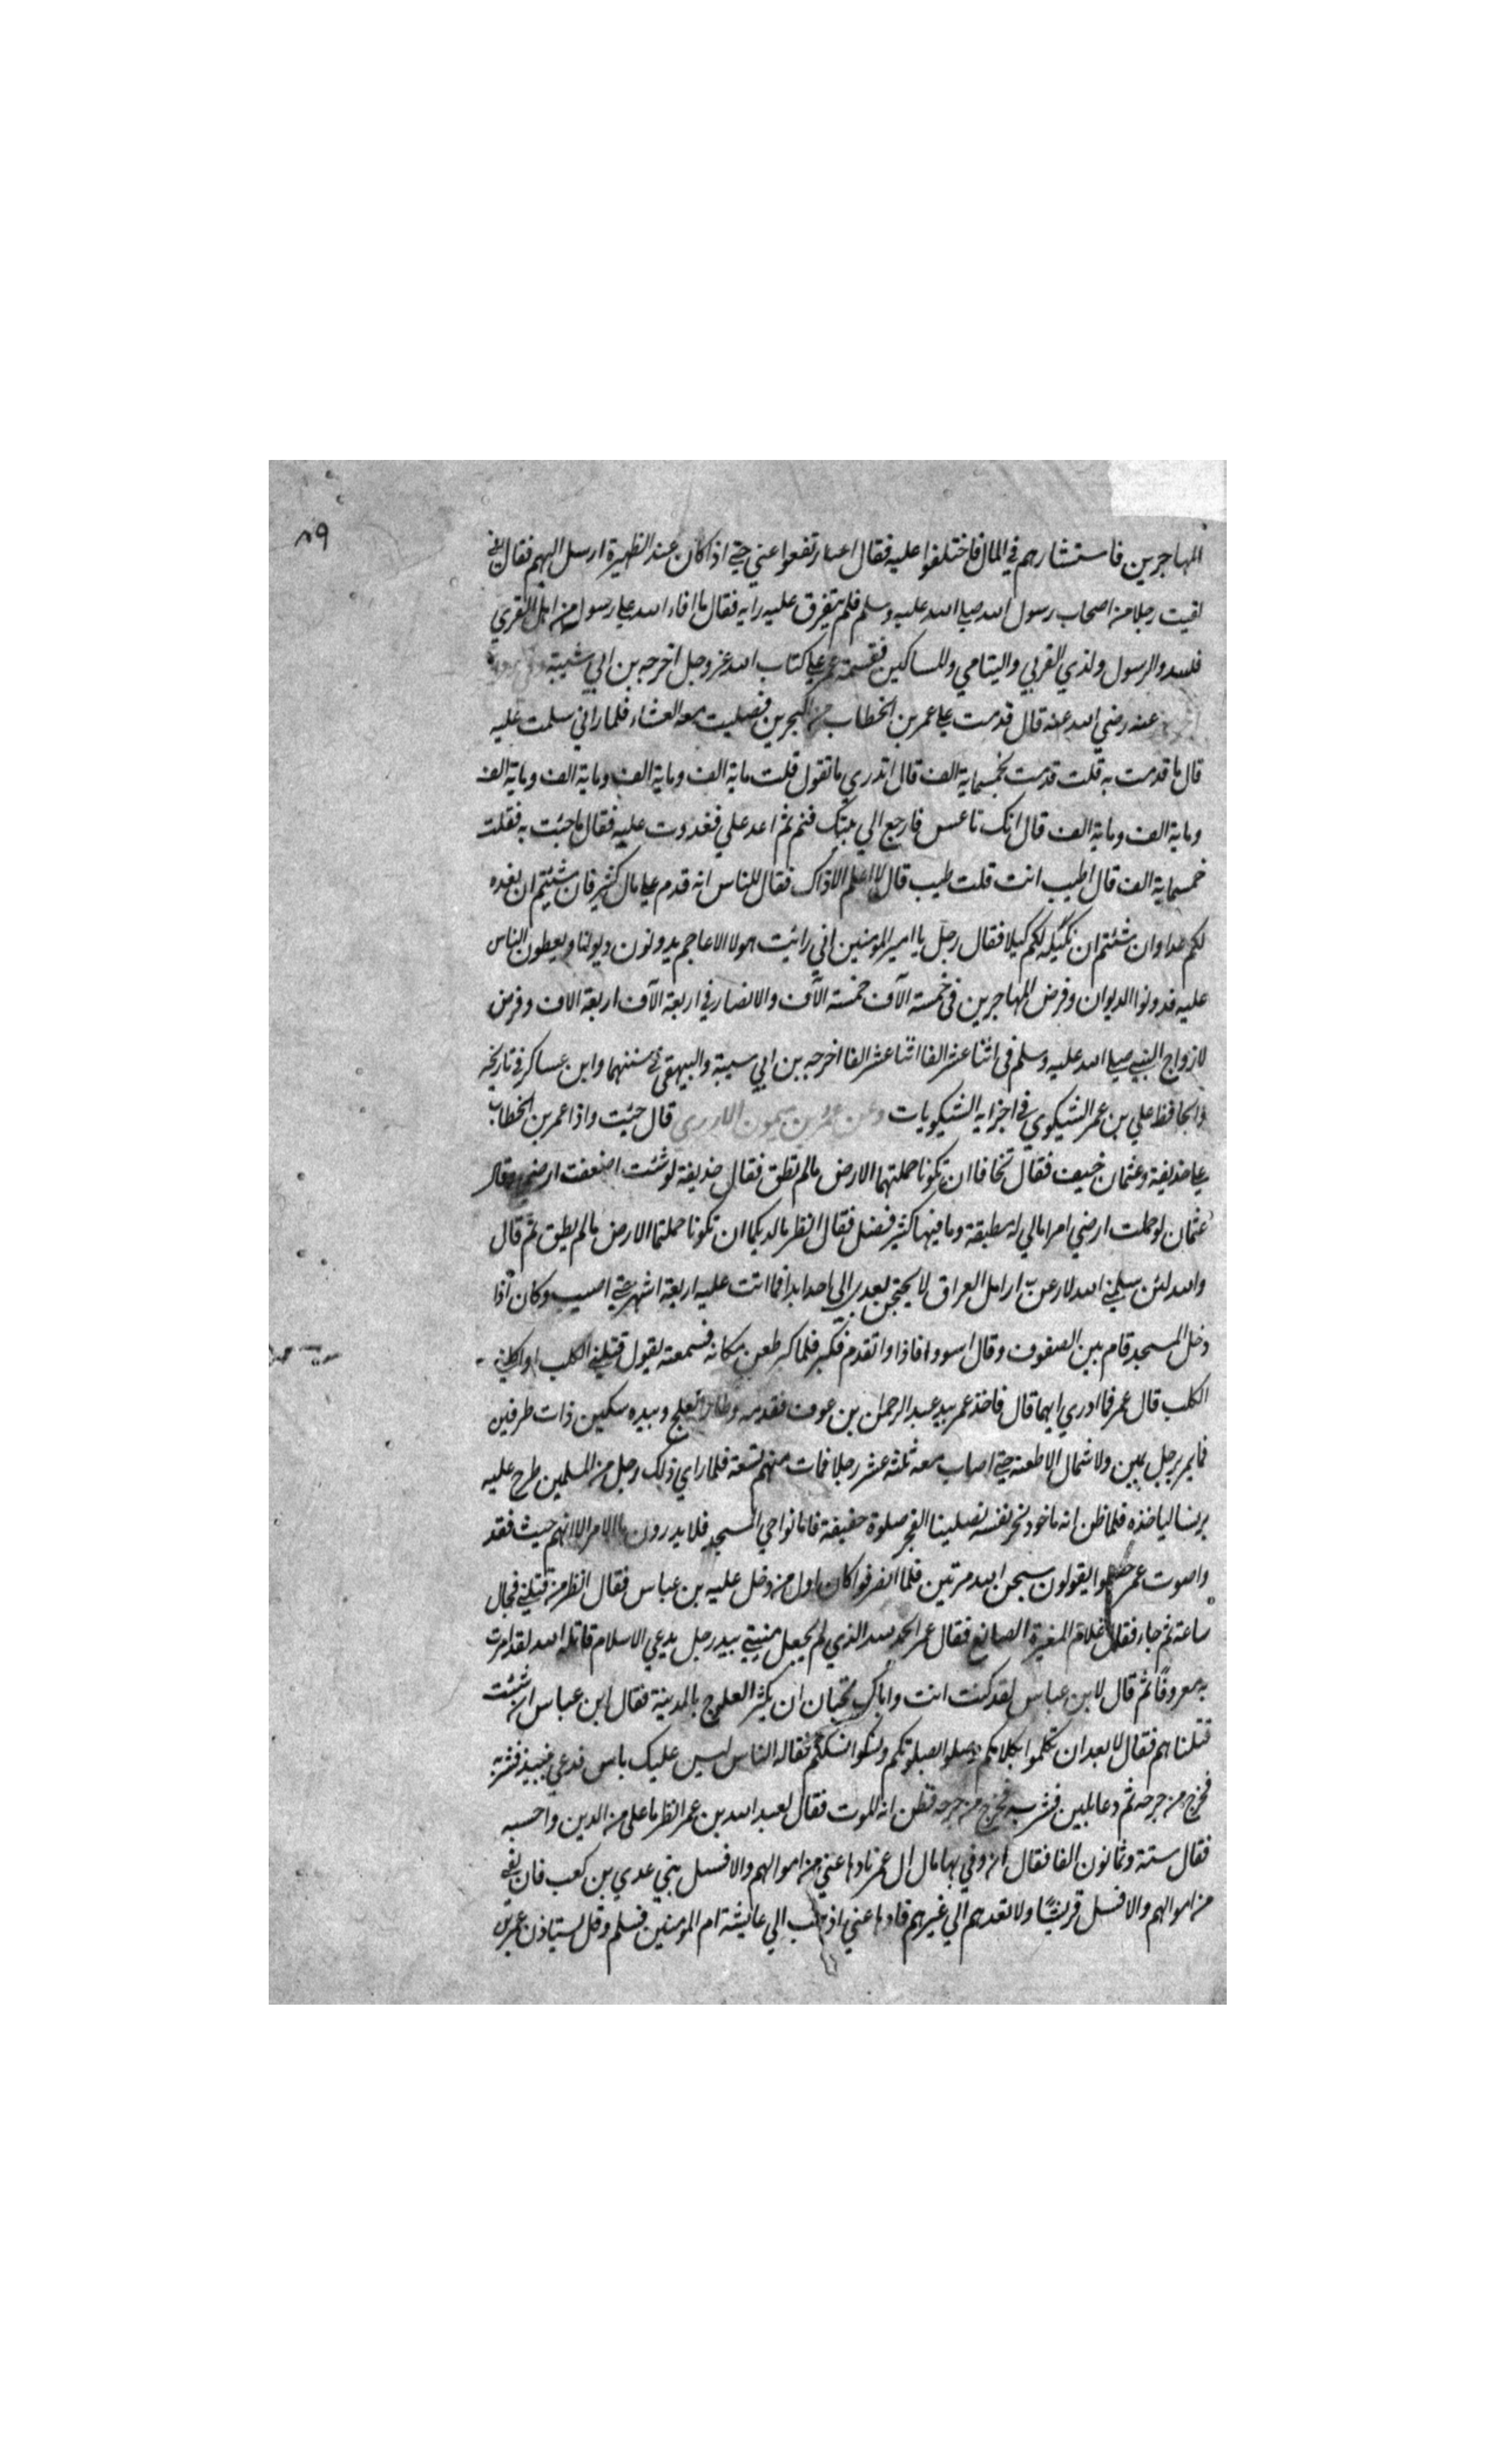 ٨٩
المهاجرين فاستشارهم في المال فاختلفوا عليه فقال عمر ارتفعوا عني حتي اذا كان عند الظهيرة ارسل اليهم فقال اني
لقيت رجلا من اصحاب رسول الله صلي الله عليه وسلم فلم يتفرق عليه رايه فقال ما افاء الله علي رسوله من اهل القري
فلله والرسول ولذي القربي واليتامي والمساكين فقسمة عمر علي كتاب الله عز وجل اخرجه بن ابي شيبة
عنه رضي الله عنه قال قدمت علي عمر بن الخطاب من البحرين فصليت معه العشاء فلما راني سلمت عليه
قال ما قدمت به قلت قدمت بخمسماية الف قال اتدري ما تقول قلت ماية الف وماية الف وماية الف وماية الف
وماية الف وماية الف قال انك ناعس فارجع الي بيتك فنم ثم اغد علي فغدوت عليه فقال ما جئت به فقلت
خمسماية الف قال اطيب انت قلت طيب قال لا اعلم الا ذاك فقال للناس انه قدم علي مال كثير فان شئتم ان نعده
لكم عدا وان شئتم ان نكيله لكم كيلا فقال رجل يا امير المومنين اني رائيت هولا الاعاجم يدونون ديوانا ويعطون الناس
عليه فدونوا الديوان وفرض المهاجرين في خمسة الآف خمسة الآف والانصار في اربعة الآف اربعة الاف وفرض
لازواج النبي صلي الله عليه وسلم في اثنا عشر الفا اثنا عشر الفا اخرجه بن ابي سيبة والبيهقي في سننهما وابن عساكر في تاريخه
والحافظ علي بن عمر الشيكوي في اجزايه الشيكويات وعن عمرو بن ميمون الاودي قال جئت واذا عمر بن الخطاب
علي حذيفة وعثمان حنيف فقال تخافا ان تكونا حملتهما الارض مالم تطق فقال حذيفة لوشئت اضعفت ارضي وقال
عثمان لو حملت ارضي امرا مالي له مطيقة وما فيها كثير فضل فقال انظر مالديكما ان تكونا حملتما الارض مالم يطيق ثم قال
والله لئن سلمني الله لادعن ارامل العراق لا يحتجن بعدي الي احد ابدا فما اتت عليه اربعة اشهر حتي اصيب وكان اذا
دخل المسجد قام بين الصفوف وقال استووا فاذا وا تقدم فكبر فلما كبر طعن مكانه فسمعته يقول قتلني الكلب او اكلني
الكلب قال عمر فما ادري ايهما قال فاخذ عمر بيد عبد الرحمان بن عوف فقدمه وطار العلج وبيده سكين ذات طرفين
فما يمر برجل يمين ولا شمال الا طعنه حتي اصاب معه ثلثة عشر رجلا فمات منهم تسعة فلما راي ذلك رجل من المسلمين طرح عليه
برنسا لياخذه فلما ظن انه ماخوذ نحر نفسه فصلينا الفجر صلوة خفيفة فاما نواحي المسجد فلا يدرون ما الامر الا انهم حيث فقد
واصوت عمر جعلوا يقولون سبحن الله مرتين فلما انصرفوا كان اول من دخل عليه بن عباس فقال انظر من قتلني فجال
ساعة ثم جاء فقال غلام المغيرة الصانع فقال عمر الحمد لله الذي لم يجعل منيتي بيد رجل يدعي الاسلام قاتله الله لقد امرت
به معروفًا ثم قال لابن عباس لقد كنت انت واباك تحبان ان يكثر العلوج بالمدينة فقال ابن عباس ان شئت
قتلناهم فقال لا بعد ان تكلموا بكلامكم وصلوا بصلوتكم ونسكوا نسككم فقاله الناس ليس عليك باس فدعي بنبيذ فشربه
فخرج من جرحه ثم دعا بلبن فشربه فخرج من جرحه فظن انه للموت فقال لعبد الله بن عمر انظر ما علي من الدين واحسبه
فقال ستة وثمانون الفا فقال ان وفي بها مال ال عمر فادها عني من اموالهم والا فسل بني عدي بن كعب فان تفي
من اموالهم والا فسل قريشًا ولا تعدهم الي غيرهم فادها عني اذهب الي عايشة ام المومنين فسلم وقل يستاذن عمر بن